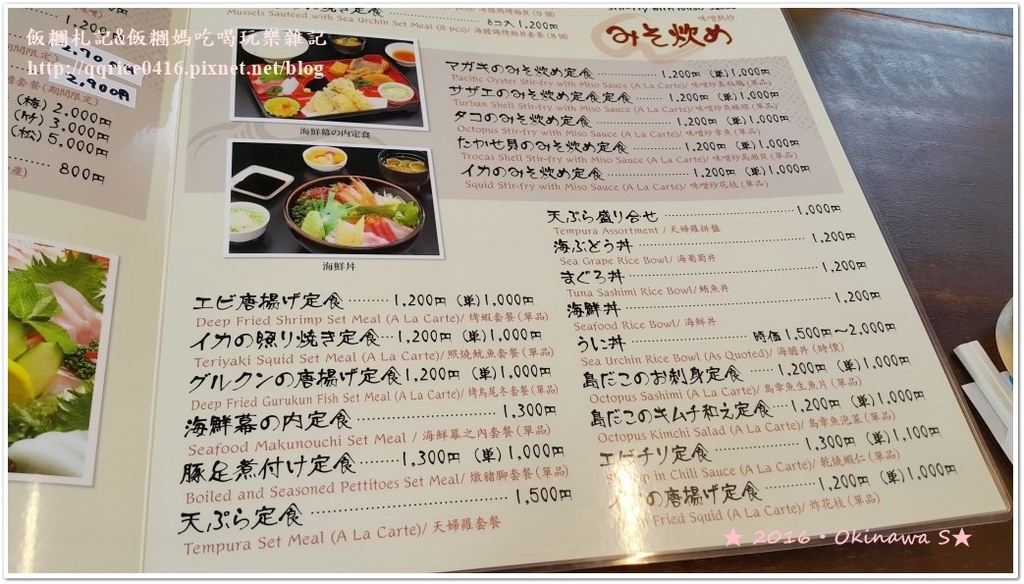 飯糰札記&飯糰媽吃喝玩樂雜記
http://qqrice0416.pixnet.net/blog
1,200
2,700円
(期間限定)
3,900円
套餐(期間限定)
(梅) 2,000円
(竹) 3,000円
(松) 5,000円
800円
8コ入 1,200円
Mussels Sauteed with Sea Urchin Set Meal (8 pcs)/ 海膽焗烤貽貝套餐(8個)
海鮮幕の内定食
海鮮丼
エビ唐揚げ定食 1,200円 (単)1,000円
Deep Fried Shrimp Set Meal (A La Carte)/ 烤蝦套餐(單品)
イカの照り焼き定食 1,200円 (単)1,000円
Teriyaki Squid Set Meal (A La Carte)/照燒魷魚套餐(單品)
グルクンの唐揚げ定食 1,200円 (単)1,000円
Deep Fried Gurukun Fish Set Meal (A La Carte)/ 烤烏尾冬套餐(單品)
海鮮幕の内定食 1,300円
Seafood Makunouchi Set Meal / 海鮮幕之內套餐(單品)
豚足煮付け定食 1,300円 (単)1,000円
Boiled and Seasoned Pettitoes Set Meal/ 燉豬腳套餐(單品)
天ぷら定食 1,500円
Tempura Set Meal (A La Carte)/ 天婦羅套餐
味噌熱炒
みそ炊め
マガキのみそ炊め定食 1,200円 (単)1,000円
Pacific Oyster Stir-fry with Miso Sauce (A La Carte)/ 味噌炒真牡蠣(單品)
サザエのみそ炊め定食定食 1,200円 (単)1,000円
Turban Shell Stir-fry with Miso Sauce (A La Carte)/ 味噌炒蠑螺(單品)
タコのみそ炊め定食 1,200円 (単)1,000円
Octopus Stir-fry with Miso Sauce (A La Carte)/ 味噌炒章魚(單品)
たかせ貝のみそ炊め定食 1,200円 (単)1,000円
Trocas Shell Stir-fry with Miso Sauce (A La Carte)/ 味噌炒高瀨貝(單品)
イカのみそ炊め定食 1,200円 (単)1,000円
Squid Stir-fry with Miso Sauce (A La Carte)/ 味噌炒花枝(單品)
天ぷら盛り合せ 1,000円
Tempura Assortment / 天婦羅拼盤
海ぶどう丼 1,200円
Sea Grape Rice Bowl/ 海葡萄丼
まぐろ丼 1,200円
Tuna Sashimi Rice Bowl/ 鮪魚丼
海鮮丼 1,200円
Seafood Rice Bowl/ 海鮮丼
うに丼 時価 1,500円〜2,000円
Sea Urchin Rice Bowl (As Quoted)/ 海膽丼(時價)
島だこのお刺身定食 1,200円 (単)1,000円
Octopus Sashimi (A La Carte)/ 島章魚生魚片(單品)
島だこのキムチ和え定食 1,200円 (単)1,000円
Octopus Kimchi Salad (A La Carte)/ 島章魚泡菜(單品)
エビチリ定食 1,300円 (単)1,100円
in Chili Sauce (A La Carte)/ 乾燒蝦仁(單品)
の唐揚げ定食 1,200円 (単)1,000円
Fried Squid (A La Carte)/ 炸花枝(單品)
★ 2016・Okinawa S★